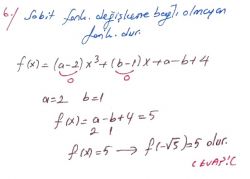 6-) Sabit fonk. değişkene bağlı olmayan
fonk. dur.
f(x) = (a-2) x³ + (b-1) x + a - b + 4
0 0
a=2 b=1
f(x) = a - b + 4 = 5
2 1
f(x) = 5 → f(-√5) = 5 olur.
CEVAP:C